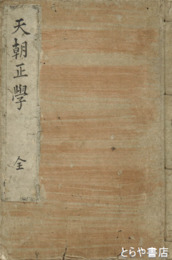 天朝正學
全
とらや書店